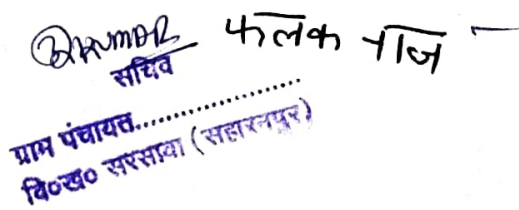 फलक नाज
सचिव
ग्राम पंचायत......................
वि०ख० सरसावा (सहारनपुर)